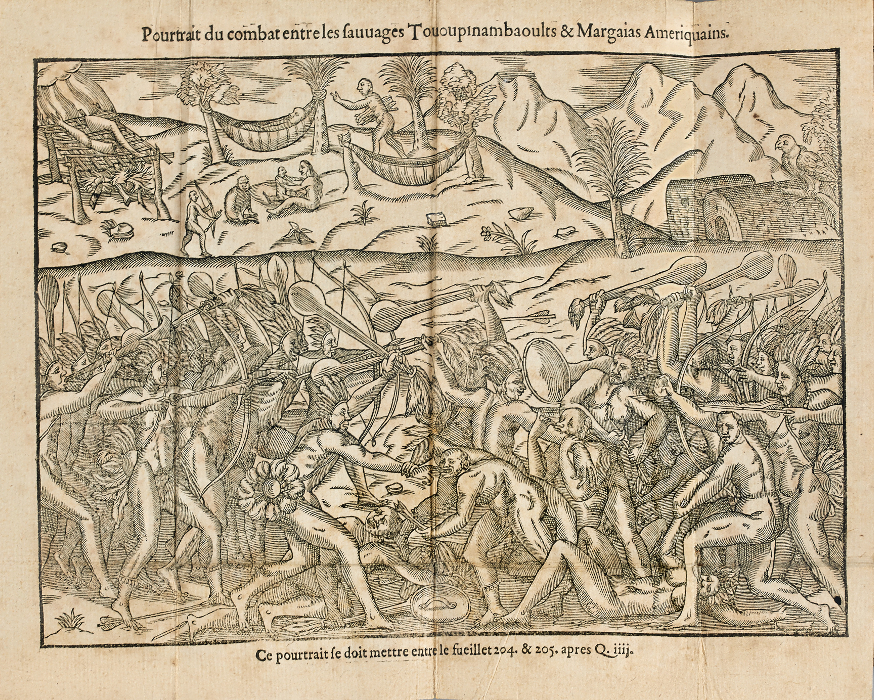 Pourtrait du combat entre les ſauuages Tououpinambaoults & Margaias Ameriquains.
Ce pourtrait ſe doit mettre entre le fueillet 204. & 205. apres Q. iiij.